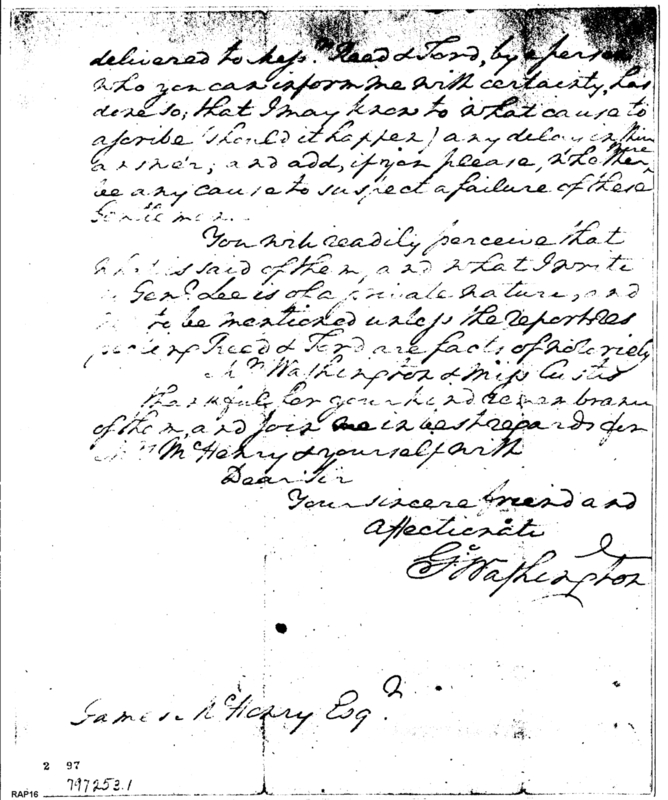 delivered to Mess.rs Reed & Ford, by a person
who you can inform me with certainty, has
done so; that I may know to what cause to
ascribe (should it happen) any delay in their
answer; and add, if you please, whether there
be any cause to suspect a failure of these
Gentlemen.
You will readily perceive that
what is said of them, and what I write
Genl. Lee is of a private nature, and
to be mentioned unless the reports res
pecting Reed & Ford are facts of notoriety
Mrs Washington & Miss Custis
thankful for your kind remembrance
of them, and join me in best regards for
Mrs McHenry & yourself with
Dear Sir
Your sincere friend and
Affectionate
Go Washington
James McHenry Esqr.
2 97
797253.1
RAP16